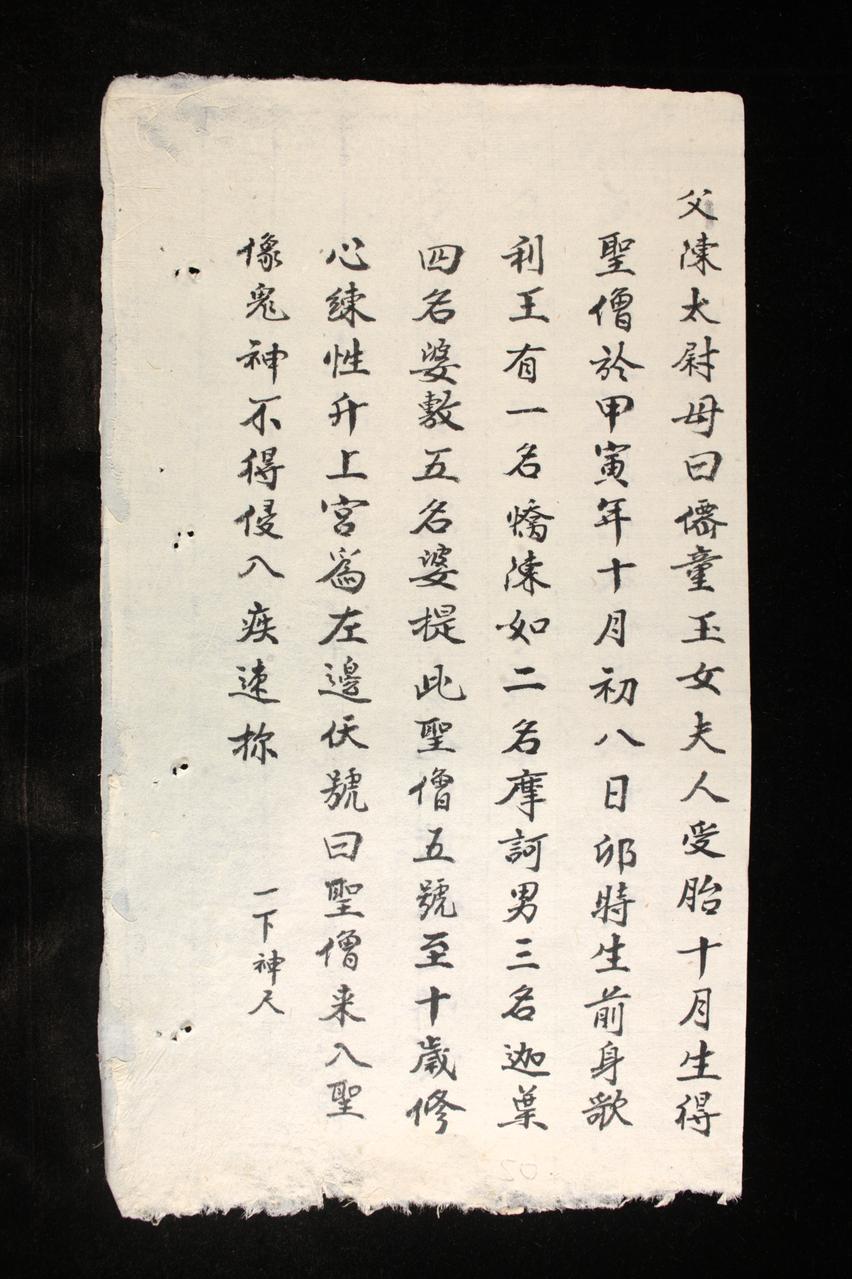 父陳太尉母曰僊童玉女夫人受胎十月生得
聖僧於甲寅年十月初八日卯時生前身歌
利王有一名憍陳如二名摩訶男三名迦葉
四名婆敷五名婆提此聖僧五號至十歲修
心練性升上宮爲左邊伏號曰聖僧来入聖
像鬼神不得侵入疾速
一下神尺